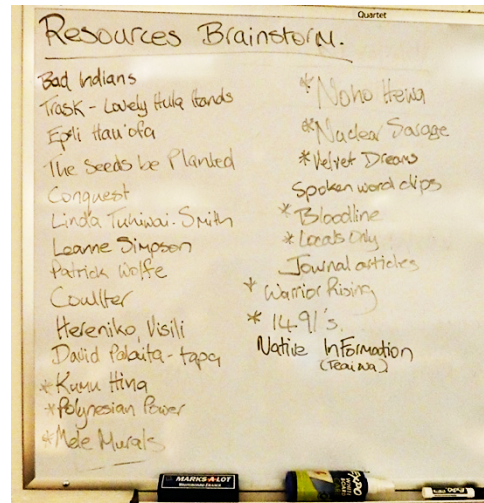 Quartet
Resources Brainstorm.
Bad Indians
Trask - Lovely Hula Hands
Epeli Hau'ofa
The Seeds be Planted
Conquest
Linda Tuhiwai-Smith
Leanne Simpson
Patrick Wolfe
Coulter
Hereniko, Visili
David Palaita - tapa
* Kumu Hina
* Polynesian Power
* Mele Murals
* Noho Hewa
* Nuclear Savage
* Velvet Dreams
Spoken word clips
* Bloodline
* Locals Only
Journal articles
* Warrior Rising
* 1491's.
Native Information
(Teaiwa)
MARKS-A-LOT
EXPO
EXPO